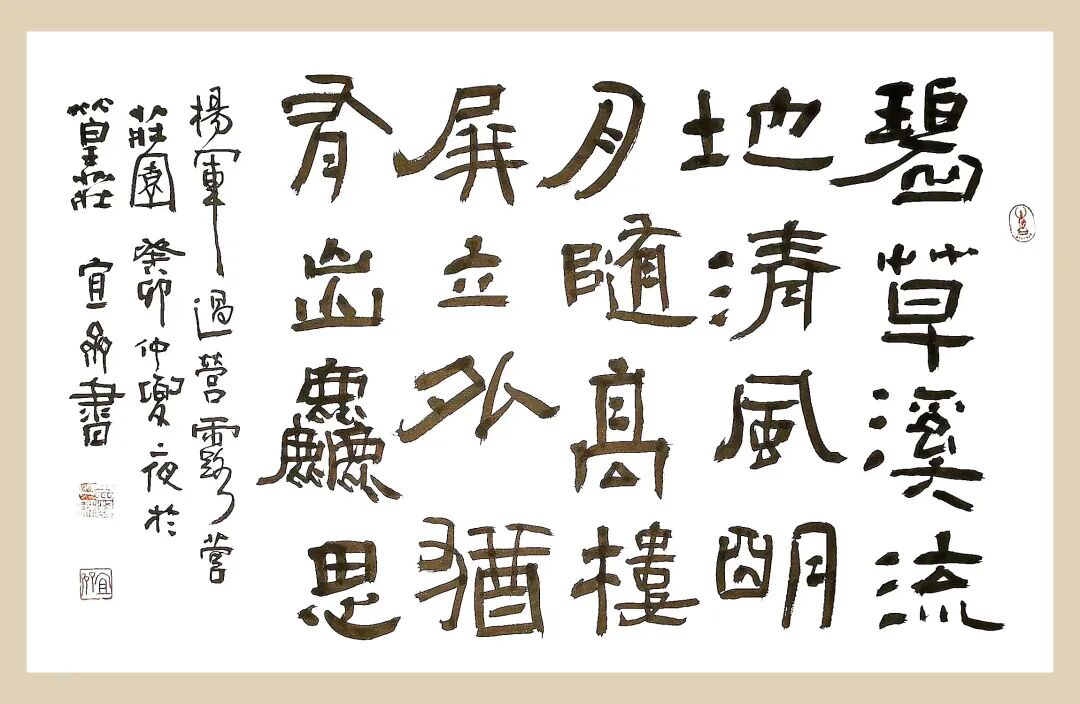 碧草溪流
地清風明
月隨高樓
屏立外猶
有出麤思
楊軍過營露營
莊園癸卯仲夏夜於
莊宜書